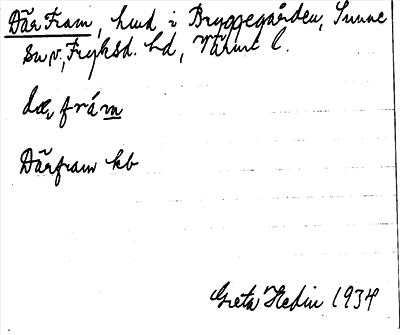 Där Fram, hmd i Bryggegården, Sunne
sn, Fryksd. hd, Värml l.
dæ, frám
Därfram kb
Greta Hedin 1934